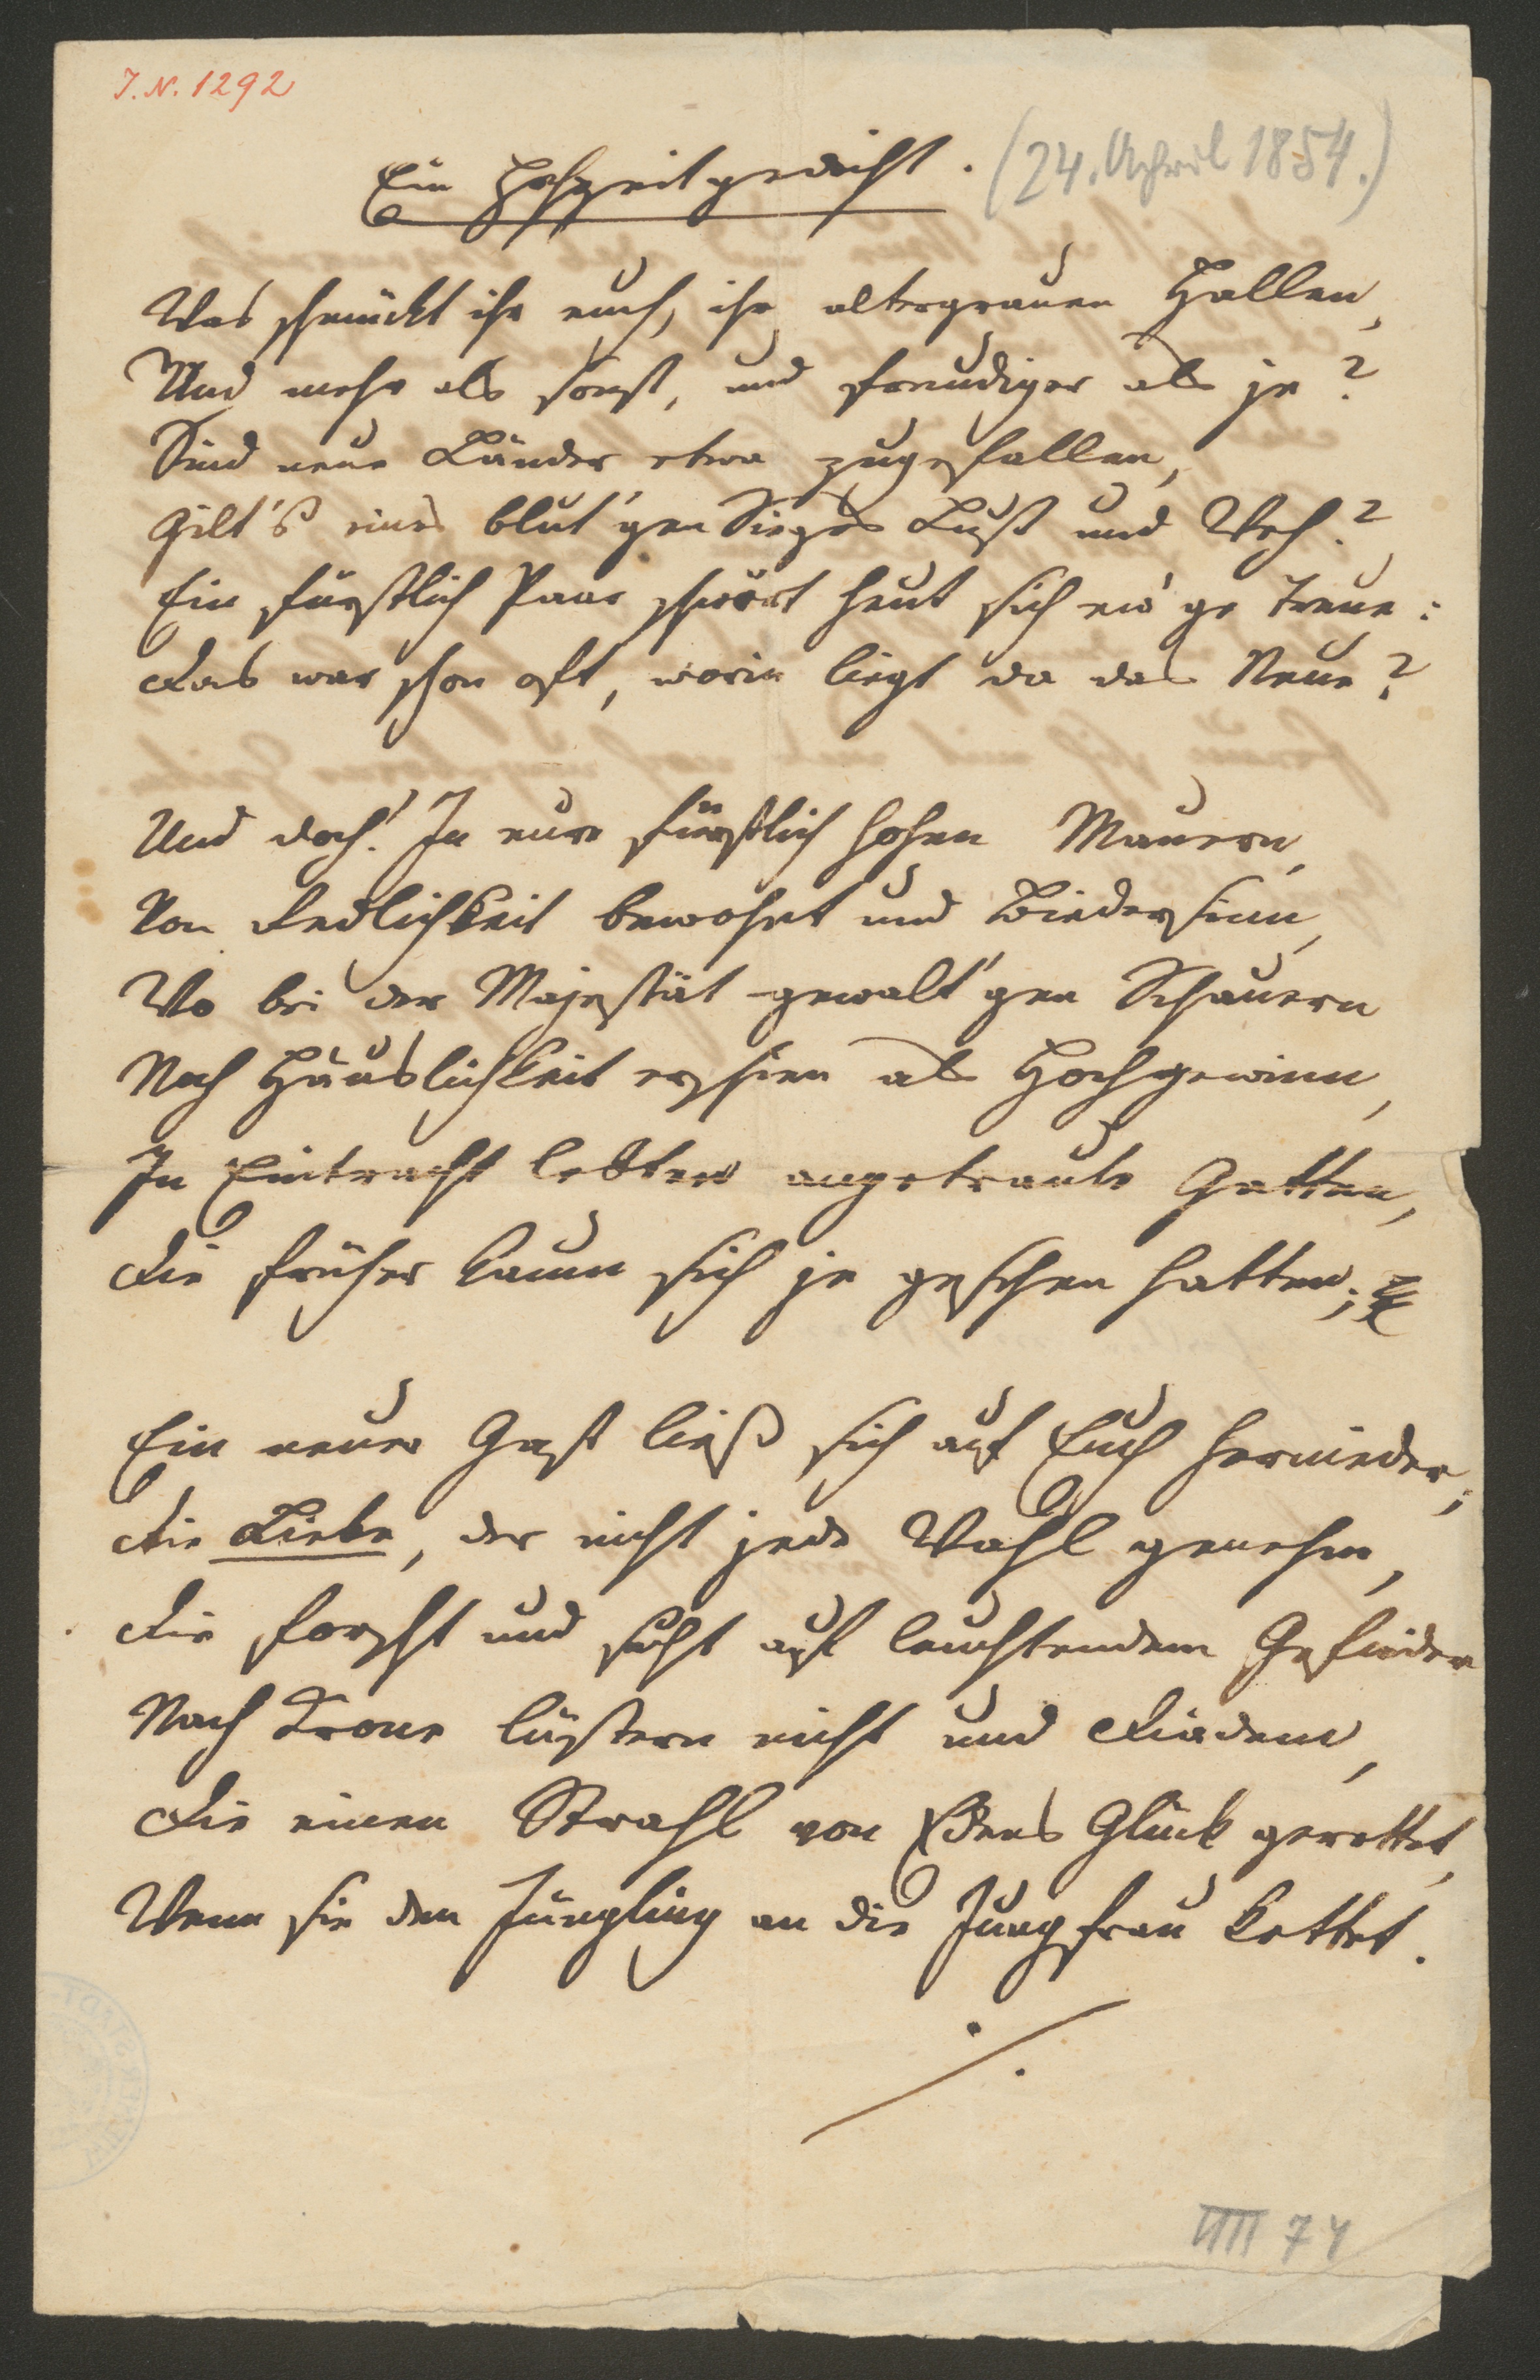 J. N. 1292
Ein Hochzeitgedicht. (24. April 1854.)
Was schmückt ihr euch, ihr altergrauen Hallen,
Und mehr als sonst, und freudiger als je?
Sind neue Länder etwa zugefallen,
Gilt's eines blut'gen Sieges Lust und Weh?
Ein fürstlich Paar schwört heut sich ew'ge Treue:
Das war schon oft, worin liegt da das Neue?
Und doch! In eure fürstlich hohen Mauern,
Von Redlichkeit bewohnt und Biedersinn,
Wo bei der Majestät gewalt'gen Schauern
Noch Häuslichkeit erschien als Hochgewinn,
In Eintracht lebten angetraute Gatten,
Die früher kaum sich je gesehen hatten;
Ein neuer Gast ließ sich auf Euch hernieder,
Die Liebe, der nicht jede Wahl genehm,
Die forscht und sucht auf leuchtendem Gefieder
Nach Krone lüstern nicht und Diadem,
Die einen Strahl von Edens Glück gerettet,
Wenn sie den Jüngling an die Jungfrau kettet.
./.
74